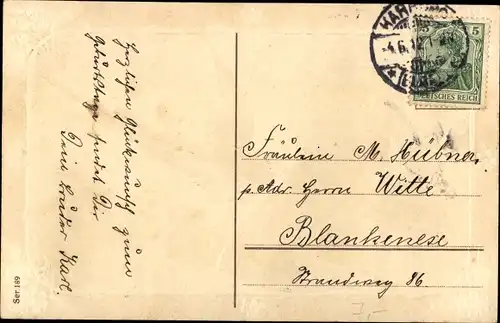 Herzlichen Glückwunsch zum
Geburtstage sendet Dir
Dein Bruder Karl.
Ser. 189
HARBURG
-4.6.
* (ELBE)
5
DEUTSCHES REICH
Fräulein M. Hübner,
p. Adr. Herrn Witte
Blankenese
Strandweg 86
7,-